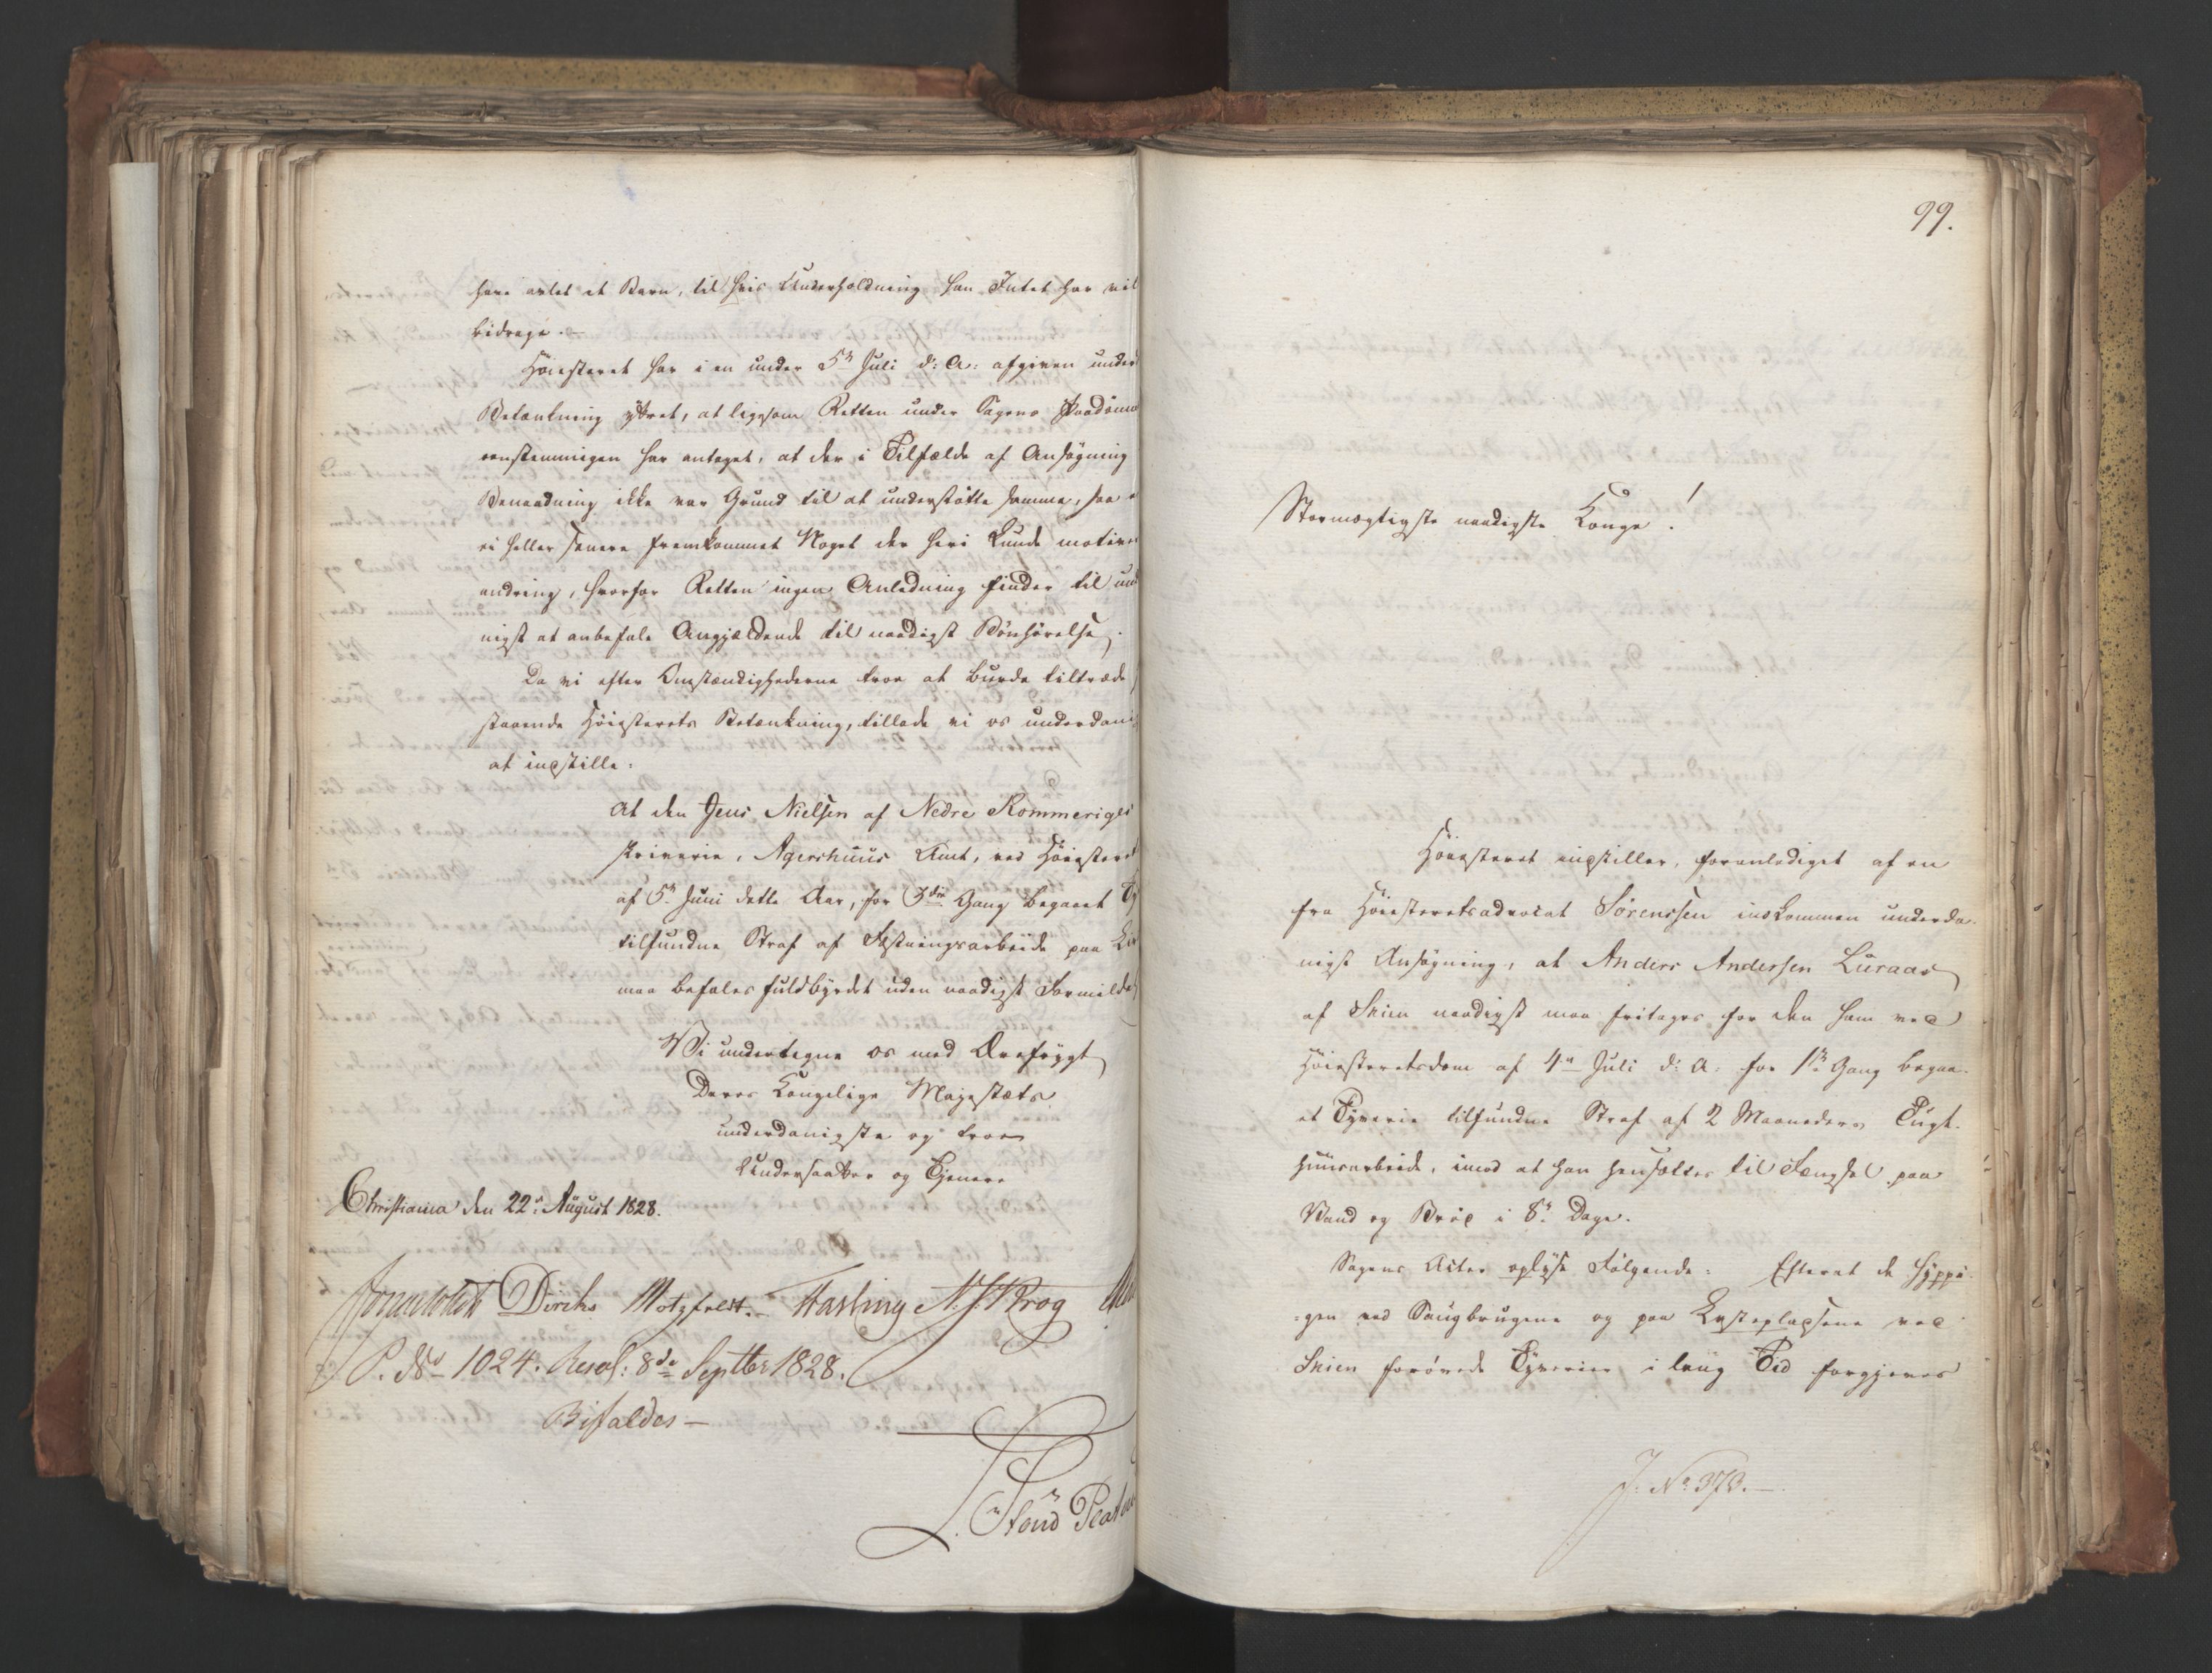 have avlet et Barn, til hvis Underholdning han Intet har vil
bidrage.
Høiesteret har i en under 5te Juli d: A: afgiven under
Betænkning yttret, at ligesom Retten under Sagens Paadømme
eenstemmigen har antaget, at der i Tilfælde af Ansøgning
Benaadning ikke var Grund til at understøtte samme, saa
ei heller senere fremkommet Noget der heri kunde motivere
andring, hvorfor Retten ingen Anledning finder til und
nigst at anbefale Angjældende til naadigst Bønhørelse.
Da vi efter Omstændighederne troe at burde tiltræde
staaende Høiesterets Betænkning, tillade vi os underdanig
at indstille:
At den Jens Nielsen af Nedre Rommeriges
skriverie, Agershuus Amt, ved Høiesteret
af 5te Juni dette Aar, for 3die Gang begaaet Ty
tilfundne Straf af Fæstningsarbeide paa Liv
maa befales fuldbyrdet uden naadigst Formildel
Vi undertegne os med Ærefrygt
Deres Kongelige Majestæts
underdanigste og troe
Undersaatter og Tjenere
Christiania den 22de August 1828.
Diriks Motzfeldt. Fasting N. J. Krog
P. No 1024. Resol: 8de Septbr 1828.
Bifaldes —
99.
Stormægtigste naadigste Konge!
Høiesteret indstiller, foranlediget af en
fra Høiesteretsadvocat Sørenssen indkommen underda-
nigst Ansøgning, at Anders Andersen Luraas
af Skien naadigst maa fritages for den ham ved
Høiesteretsdom af 4de Juli d: A: for 1ste Gang begaa-
et Tyverie tilfundne Straf af 2 Maaneders Tugt-
huusarbeide, imod at han hensættes til Fængsel paa
Vand og Brød i 8te Dage.
Sagens Acter oplyse Følgende: Efterat de hyppi-
=gen ved Saugbrugene og paa Lastepladsene ved
Skien forøvede Tyverier i lang Tid forgjeves
J. No 373.